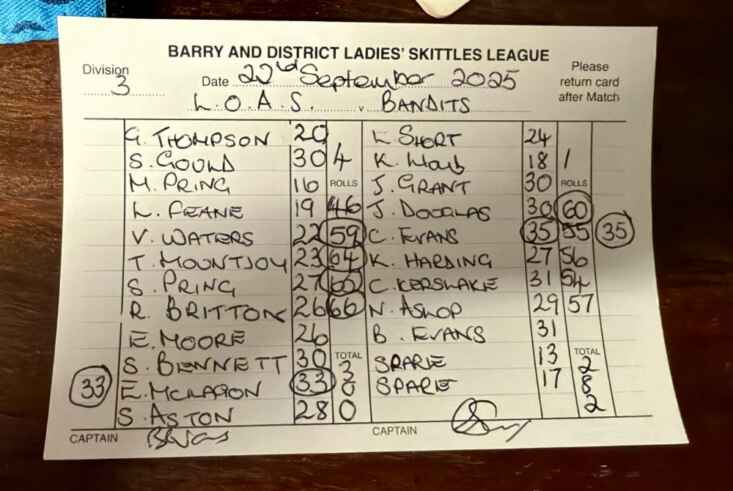 BARRY AND DISTRICT LADIES' SKITTLES LEAGUE
Division 3 Date 22nd September 2025 Please return card after Match
L.O.A.S. v. BANDITS
G. THOMPSON 20 L. SHORT 24
S. GOULD 30 4 K. 18 1
M. PRING 16 ROLLS J. GRANT 30 ROLLS
L. FEANE 19 46 J. DOUGLAS 30 60
V. WATERS 22 59 C. EVANS 35 55 35
T. MOUNTJOY 23 64 K. HARDING 27 56
S. PRING 27 C. KERSLAKE 31 54
R. BRITTON 26 66 N. ASHOP 29 57
E. MOORE 26 B. EVANS 31
S. BENNETT 30 TOTAL 3 SPARE 13 TOTAL 2
33 E. 33 2 SPARE 17 8
S. ASTON 28 0 2
CAPTAIN CAPTAIN